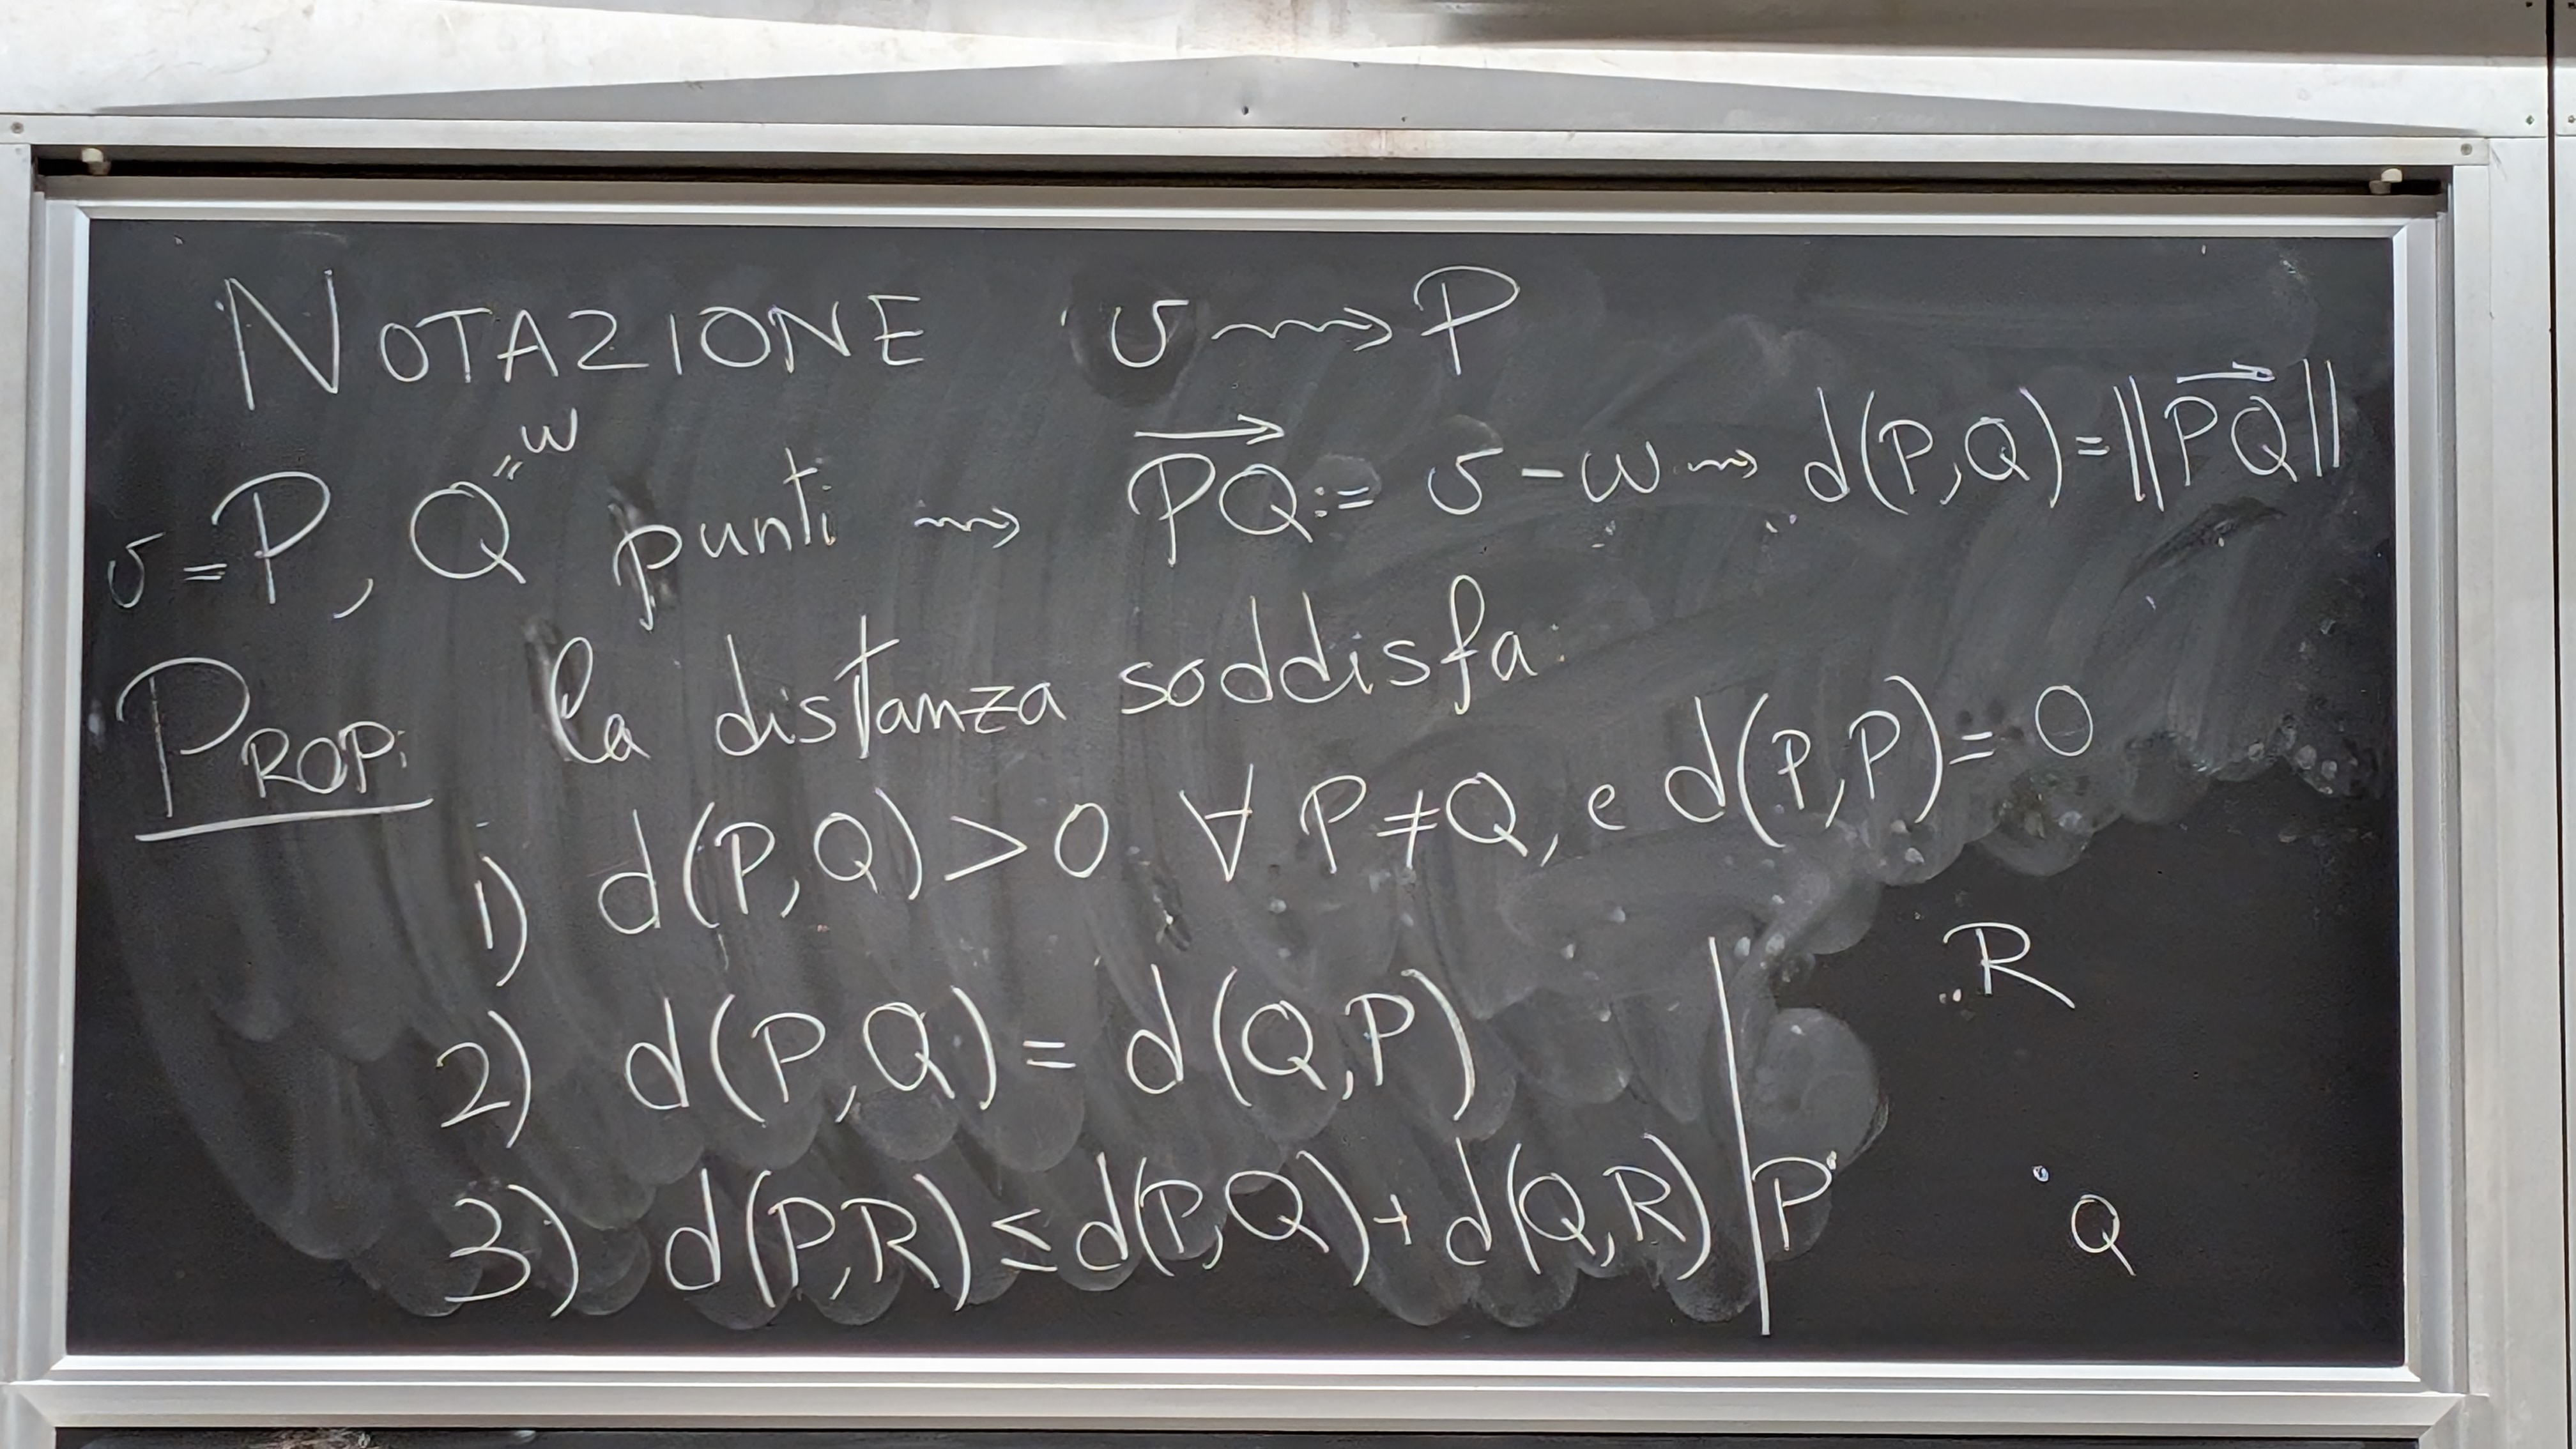 NOTAZIONE v ⇝ P
v = P, Q = w punti ⇝ \overrightarrow{PQ} := v - w ⇝ d(P,Q) = ||\overrightarrow{PQ}||
PROP: la distanza soddisfa:
1) d(P,Q) > 0 ∀ P ≠ Q, e d(P,P) = 0
2) d(P,Q) = d(Q,P)
3) d(P,R) ≤ d(P,Q) + d(Q,R)
R
P
Q